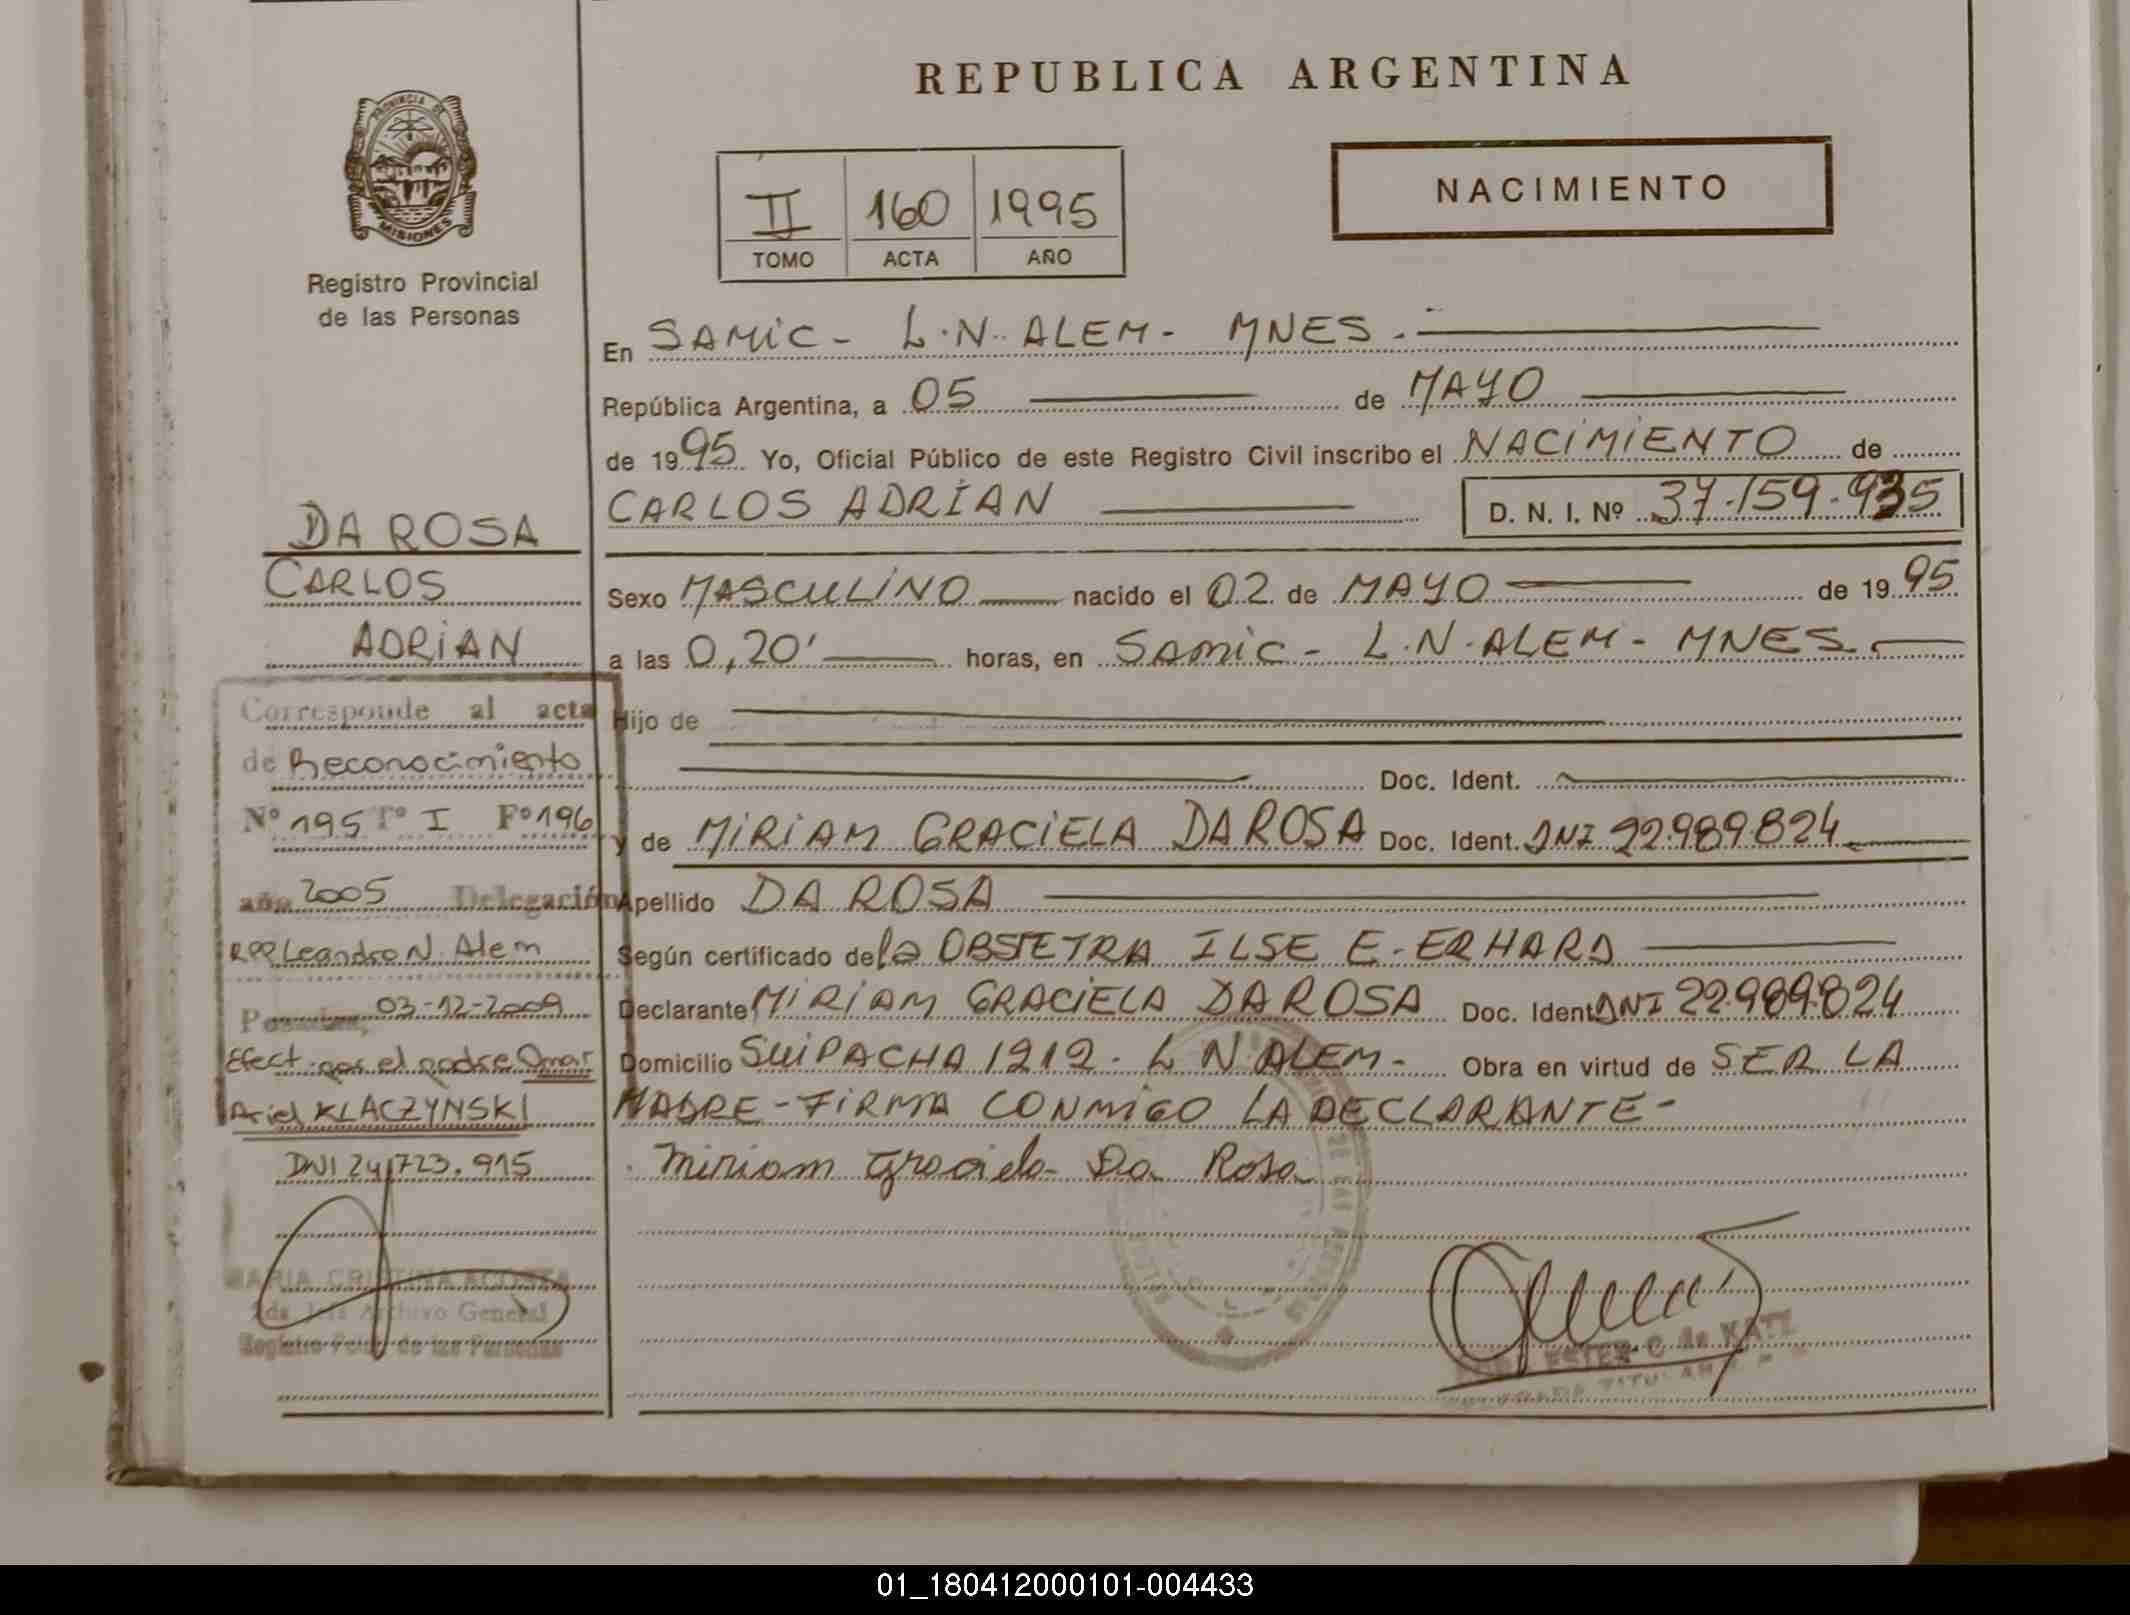 REPUBLICA ARGENTINA
PROVINCIA DE
MISIONES
Registro Provincial
de las Personas
II 160 1995
TOMO ACTA AÑO
NACIMIENTO
En SAMIC - L.N. ALEM - MNES.
República Argentina, a 05 de MAYO
de 1995 Yo, Oficial Público de este Registro Civil inscribo el NACIMIENTO de
CARLOS ADRIAN D. N. I. Nº 37.159.935
Sexo MASCULINO nacido el 02 de MAYO de 1995
a las 0,20' horas, en SAMIC - L.N. ALEM - MNES.
Hijo de
Doc. Ident.
y de MIRIAM GRACIELA DA ROSA Doc. Ident. DNI 22.989.824
Apellido DA ROSA
Según certificado de la OBSTETRA ILSE E. ERHARD
Declarante MIRIAM GRACIELA DA ROSA Doc. Ident. DNI 22.989.824
Domicilio SUIPACHA 1212. L N ALEM - Obra en virtud de SER LA
MADRE - FIRMA CONMIGO LA DECLARANTE -
Miriam Graciela Da Rosa
ESTER C. de KATZ
DA ROSA
CARLOS
ADRIAN
Corresponde al acta
de Reconocimiento
Nº 195 Tº I Fº 196
año 2005 Delegación
RPP Leandro N. Alem
Posadas, 03-12-2009
Efect. por el padre Omar
Ariel KLACZYNSKI
DNI 24.723.915
MARIA CRISTINA ACOSTA
Archivo General
Registro Pcial. de las Personas
01_180412000101-004433